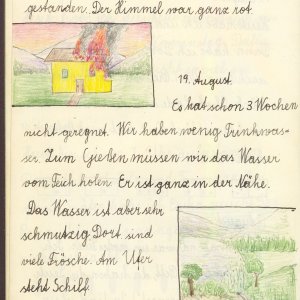 gestanden. Der Himmel war ganz rot.
19. August
Es hat schon 3 Wochen
nicht geregnet. Wir haben wenig Trinkwas-
ser. Zum Gießen müssen wir das Wasser
vom Teich holen. Er ist ganz in der Nähe.
Das Wasser ist aber sehr
schmutzig. Dort sind
viele Frösche. Am Ufer
steht Schilf.